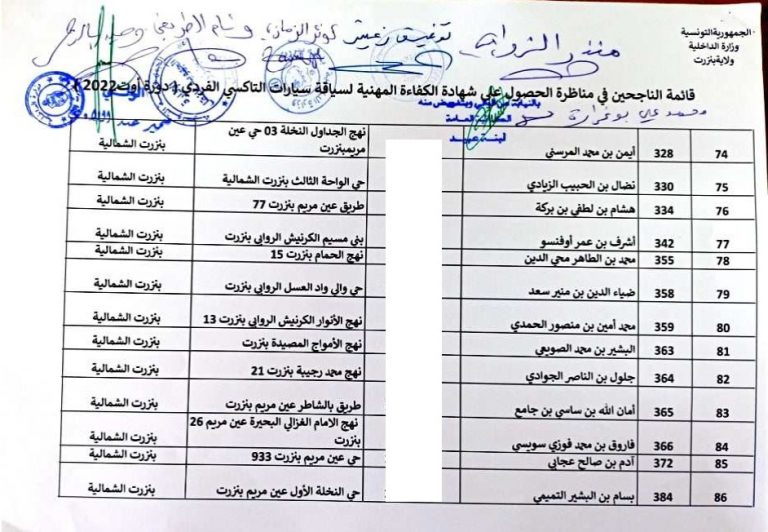 الجمهورية التونسية
وزارة الداخلية
ولاية بنزرت
قائمة الناجحين في مناظرة الحصول على شهادة الكفاءة المهنية لسياقة سيارات التاكسي الفردي ( دورة أوت 2022 )
74 328 أيمن بن محمد المرسني نهج الجداول النخلة 03 حي عين مريمبنزرت بنزرت الشمالية
75 330 نضال بن الحبيب الزيادي حي الواحة الثالث بنزرت الشمالية بنزرت الشمالية
76 334 هشام بن لطفي بن بركة طريق عين مريم بنزرت 77 بنزرت الشمالية
77 342 أشرف بن عمر أوفنسو بني مسيم الكرنيش الروابي بنزرت بنزرت الشمالية
78 355 محمد بن الطاهر محي الدين نهج الحمام بنزرت 15 بنزرت الشمالية
79 358 ضياء الدين بن منير سعد حي والي واد العسل الروابي بنزرت بنزرت الشمالية
80 359 محمد أمين بن منصور الحمدي نهج الأنوار الكرنيش الروابي بنزرت 13 بنزرت الشمالية
81 363 البشير بن محمد الصويعي نهج الأمواج المصيدة بنزرت بنزرت الشمالية
82 364 جلول بن الناصر الجوادي نهج محمد رجيبة بنزرت 21 بنزرت الشمالية
83 365 أمان الله بن ساسي بن جامع طريق بالشاطر عين مريم بنزرت بنزرت الشمالية
84 366 فاروق بن محمد فوزي سويسي نهج الامام الغزالي البحيرة عين مريم 26 بنزرت بنزرت الشمالية
85 372 آدم بن صالح عجابي حي عين مريم بنزرت 933 بنزرت الشمالية
86 384 بسام بن البشير التميمي حي النخلة الأول عين مريم بنزرت بنزرت الشمالية